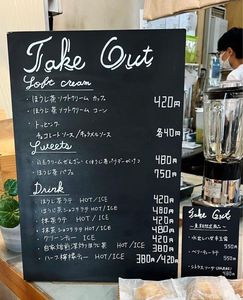 Take Out
Soft cream
・ほうじ茶ソフトクリーム カップ 420円
・ほうじ茶ソフトクリーム コーン
・トッピング
チョコレートソース/キャラメルソース 各40円
Sweets
480円
・ほうじ茶パフェ 750円
Drink
ほうじ茶ラテ HOT/ICE 420円
ほうじ茶ショコララテ HOT/ICE 480円
抹茶ラテ HOT/ICE 420円
抹茶ショコララテ HOT/ICE 480円
グリーンティー ICE 420円
HOT/ICE 380円
ハーブ檸檬ティー HOT/ICE 380円/420円
Take Out
550円
550円